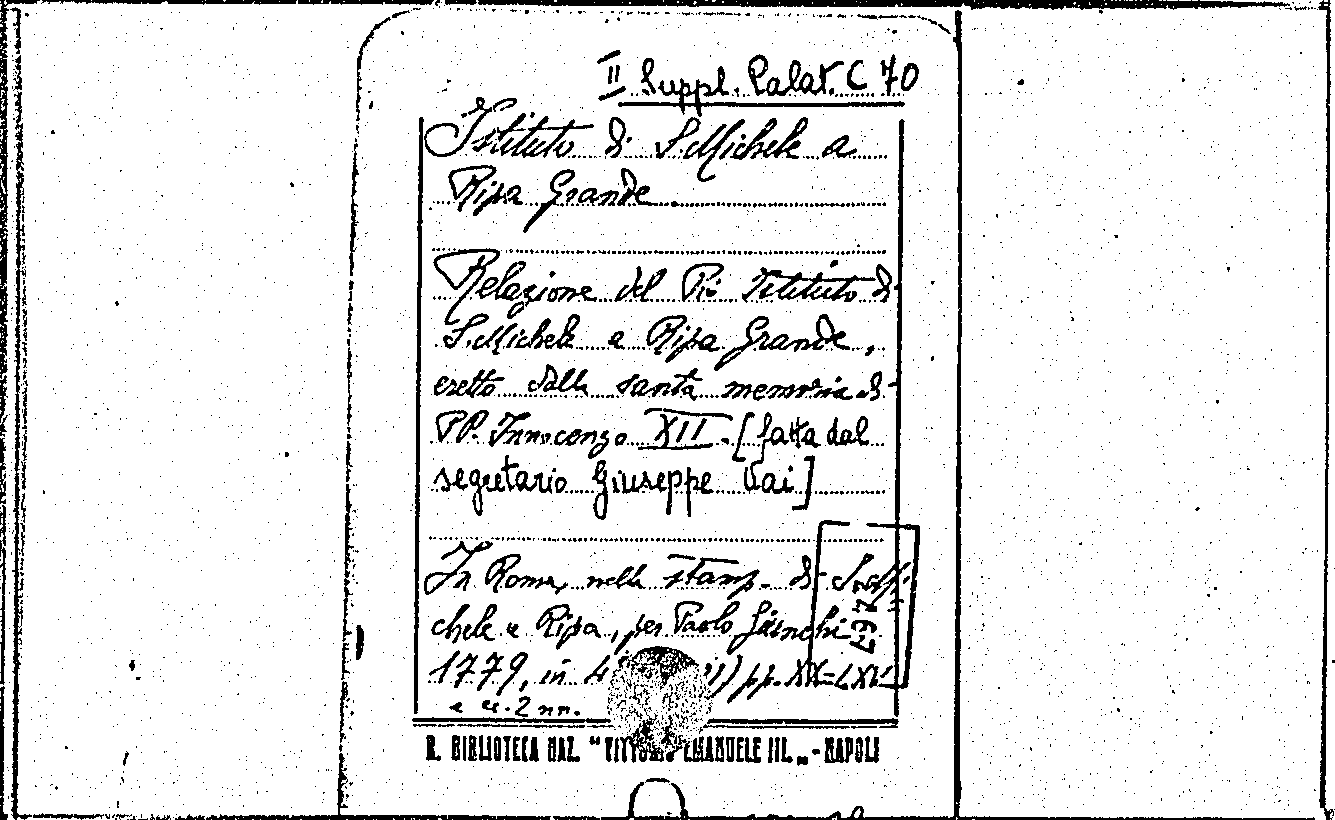 II Suppl. Palat. C 70
Istituto di S. Michele a
Ripa Grande.
Relazione del Pio Istituto di
S. Michele a Ripa Grande,
eretto dalla santa memoria di
PP. Innocenzo XII. [fatta dal
segretario Giuseppe Vai]
In Roma, nella stamp. di S. Mi
chele a Ripa, per Paolo Giunchi
1779, in 4 pp. XX-LXV
e cc. 2 nn.
R. BIBLIOTECA NAZ. "VITTORIO EMANUELE III." - NAPOLI